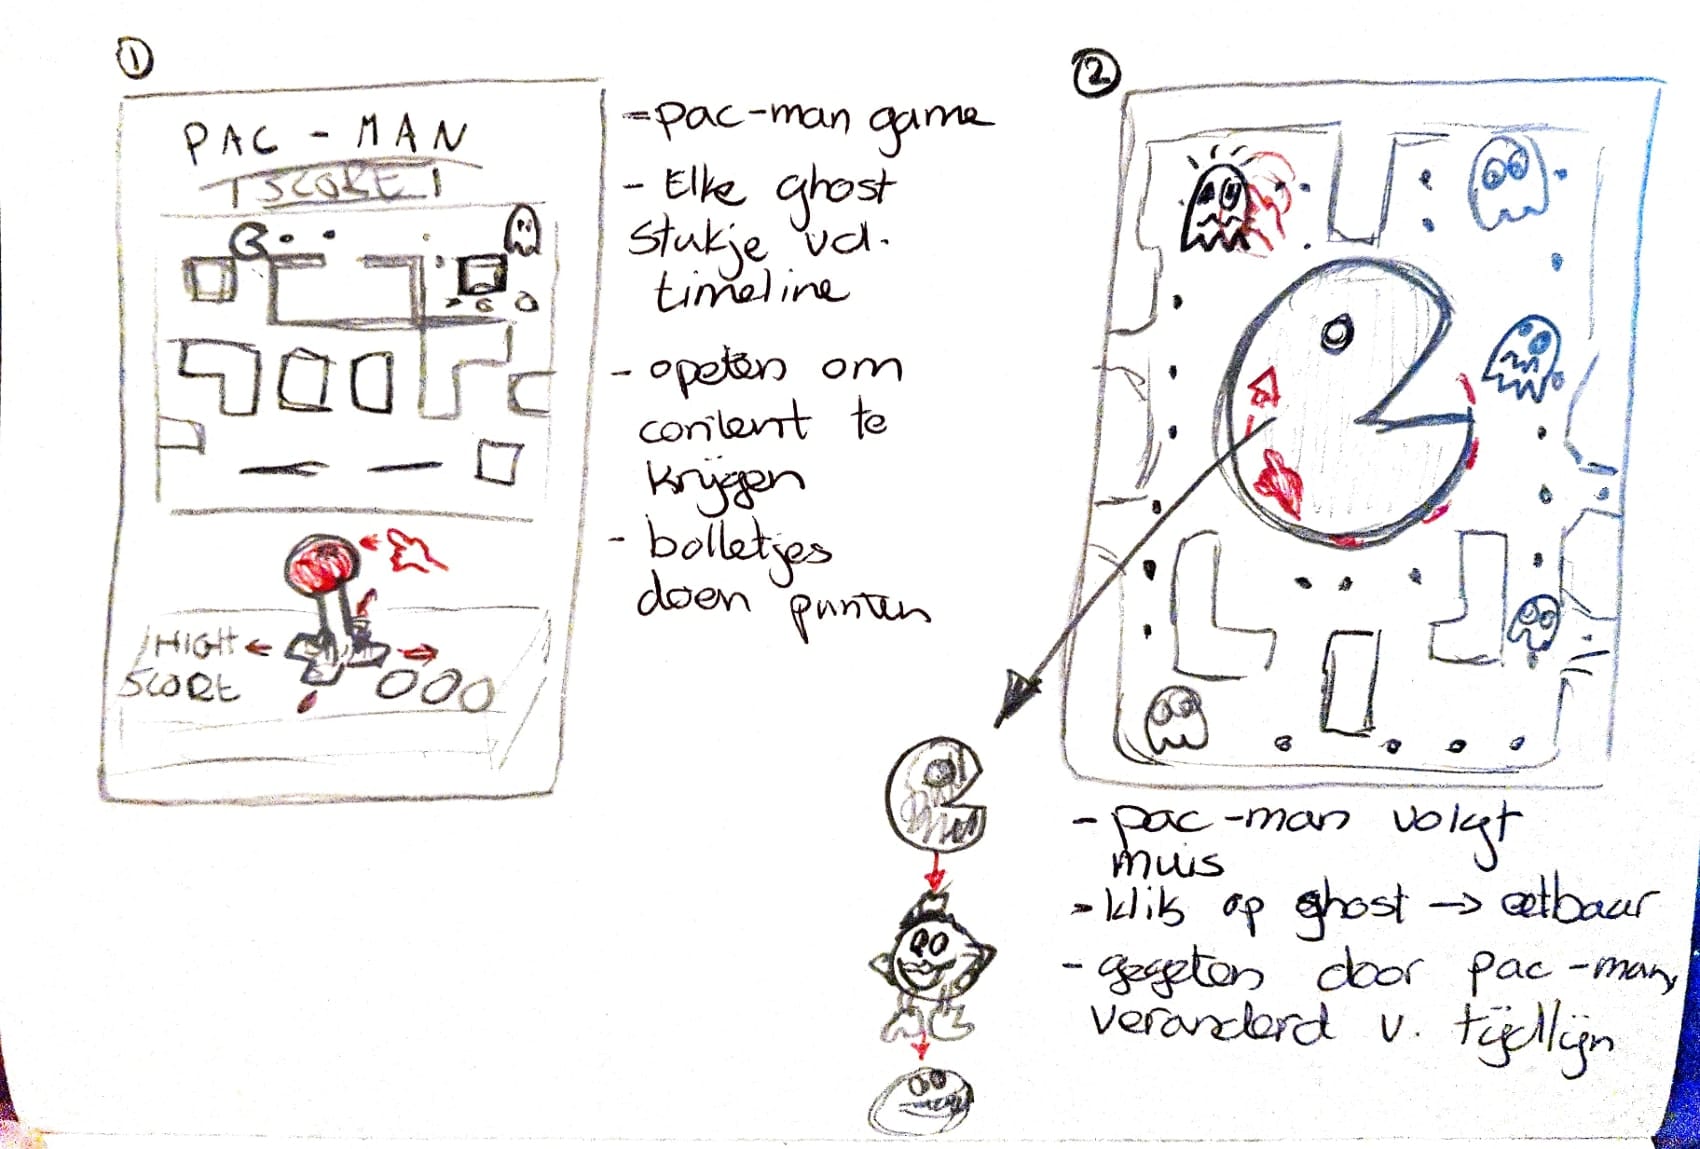 1
PAC - MAN
SCORE
HIGH
SCORE
= pac-man game
- Elke ghost
stukje vd.
timeline
- opeten om
content te
krijgen
- bolletjes
doen punten
2
- pac-man volgt
muis
- klik op ghost → eetbaar
- gegeten door pac-man,
veranderd v. tijdlijn